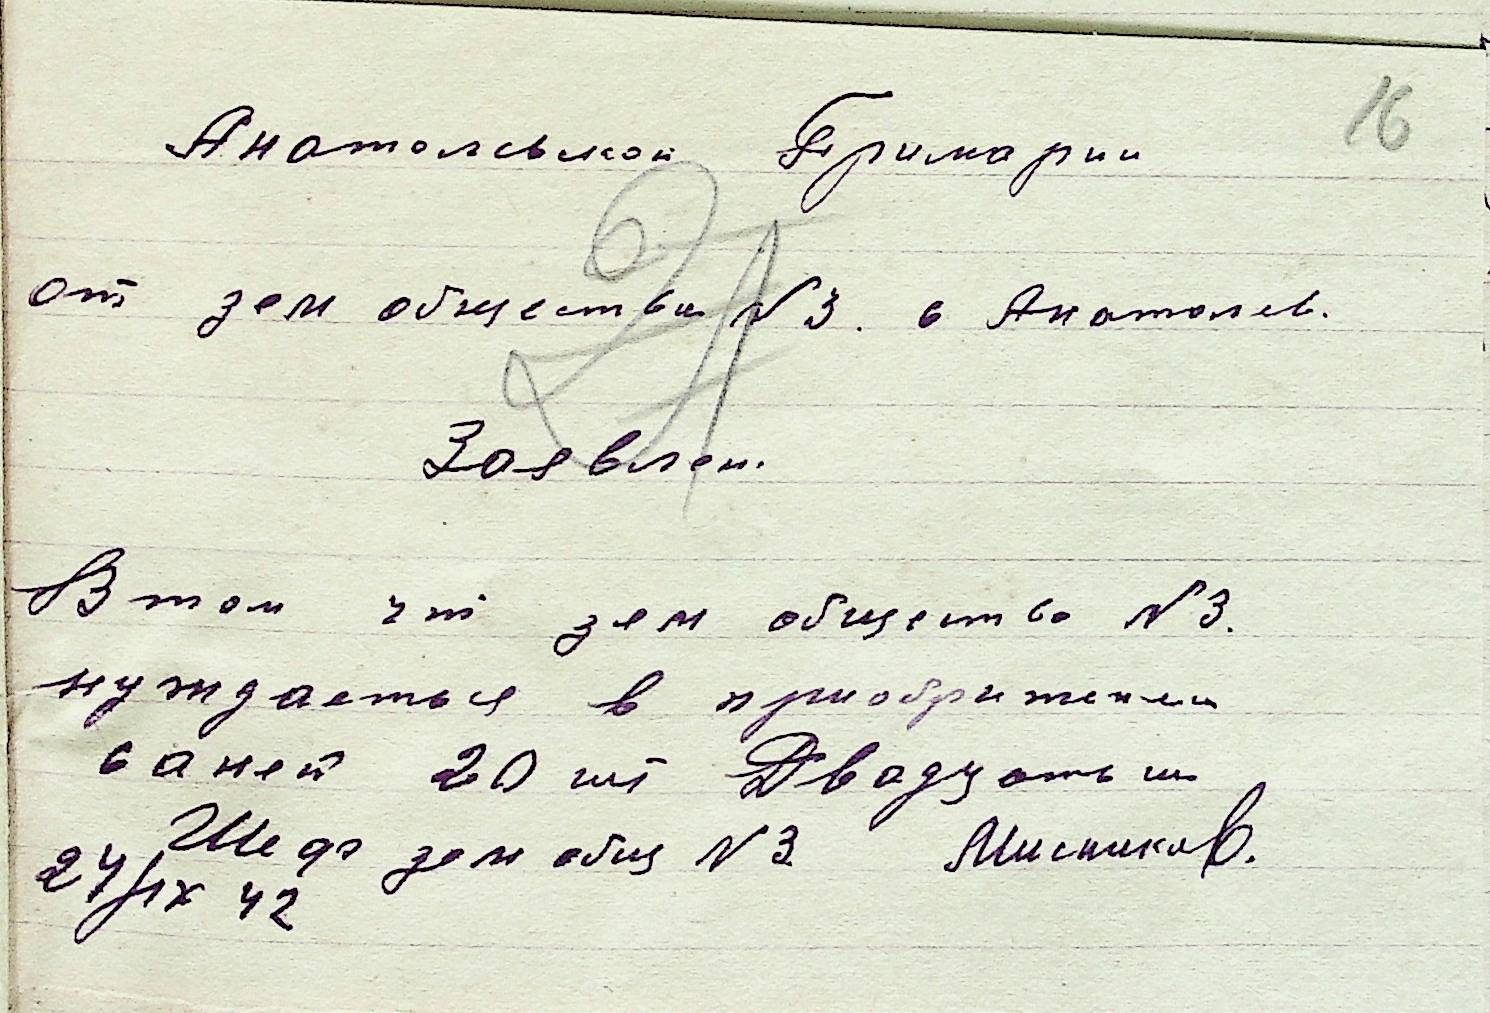 16
Анатольевской Примарии
21
от зем общества N 3. с Анатольев.
Заявлен.
В том что зем общество N 3.
нуждаеться в приобритении
саней 20 шт Двадцать ш
Шеф зем общ N 3 Мисников.
24/IX 42